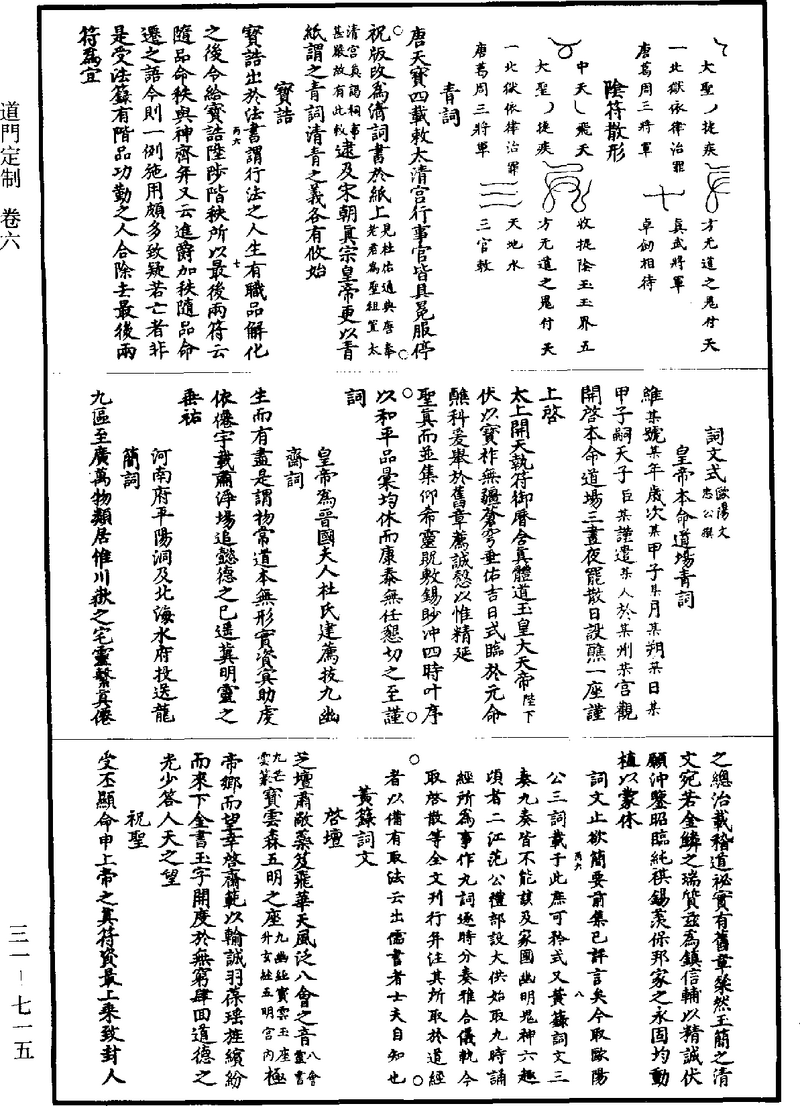 大聖丿捉疾　方元道之鬼付天
一北獄依律治罪　真武將軍
唐葛周三將軍　卓劍相待
陰符散形
中天乀飛天　收捉陰玉玉界五
大聖丿捉疾　方元道之鬼付天
一北獄依律治罪　天地水
唐葛周三將軍　三官敕
青詞
唐天寶四載敕太清宮行事官皆具冕服停
祝版改為清詞書於紙上見杜佑通典唐奉老君為聖祖置太
清宮真謁祠事甚嚴故有此敕逮及宋朝真宗皇帝更以青
紙謂之青詞清青之義各有攸始
寶誥
寶誥出於法書謂行法之人生有職品解化
之後令給寶誥陞陟階秩所以最後兩符云
丙六　十
隨品命秩與神齊年又云進爵加秩隨品命
遷之語今則一例施用頗多致疑若亡者非
是受法籙有階品功勤之人合除去最後兩
符為宜
詞文式歐陽文忠公撰
皇帝本命道場青詞
維某號某年歲次某甲子某月某朔某日某
甲子嗣天子臣某謹遣某人於某州某宮觀
開啓本命道場三晝夜罷散日設醮一座謹
上啓
太上開天執符御曆含真體道玉皇大天帝陛下
伏以寶祚無疆蒼穹垂佑吉日式臨於元命
醮科爰舉於舊章薦誠慤以惟精延
聖真而並集仰希靈貺敷錫眇沖四時叶序
以和平品彙均休而康泰無任懇切之至謹
詞
皇帝為晉國夫人杜氏建薦拔九幽
齋詞
生而有盡是謂物常道本無形實資冥助虔
依僊宇載肅淨場追懿德之已遥冀明靈之
垂祐
河南府平陽洞及北海水府投送龍
簡詞
九區至廣萬物類居惟川嶽之宅靈繫真僊
之總治載稽道祕實有舊章粲然玉簡之清
文宛若金鱗之瑞質兹為鎮信輔以精誠伏
願沖鑒昭臨純祺錫羨保邦家之永固均動
植以蒙休
詞文止欲簡要前集已評言矣今取歐陽
丙六　八
公三詞載于此庶可矜式又黄籙詞文三
奏九奏皆不能該及家國幽明鬼神六趣
頃者二江范公禮部設大供始取九時誦
經所為事作九詞逐時分奏雅合儀軌今
取啓散等全文刊行并注其所取於道經
者以備有取法云出儒書者士夫自知也
黄籙詞文
啓壇
芝壇肅敞蘂笈飛華天風泛八會之音八會靈書
九芒雲篆寶雲森五明之座九幽經寶雲玉座升玄經五明宮內極
帝鄉而望幸啓齋範以輸誠羽葆瑶旌繽紛
而來下金書玉字開度於無窮肆回道德之
光少答人天之望
祝聖
受丕顯命申上帝之真符資最上乘致封人
道門定制　卷六
三一－七一五